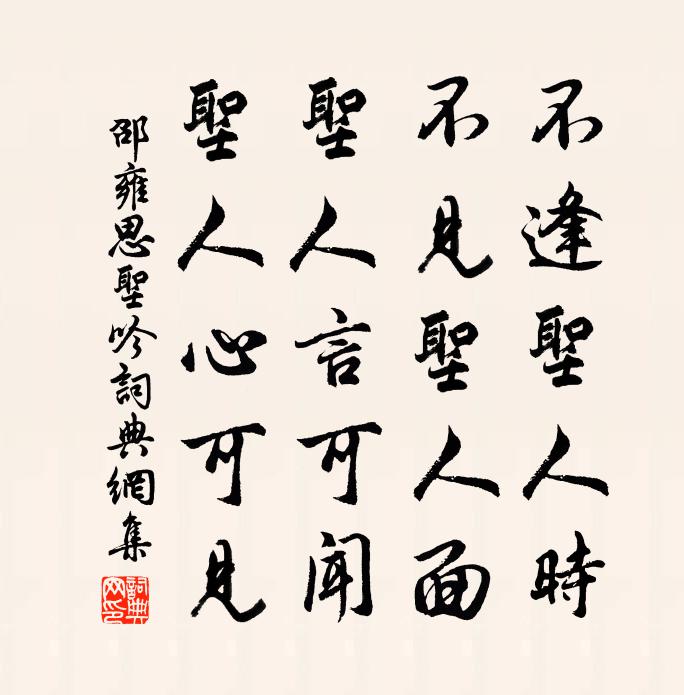 不逢聖人時
不見聖人面
聖人言可聞
聖人心可見
邵雍思聖吟詞典網集
詞典網印